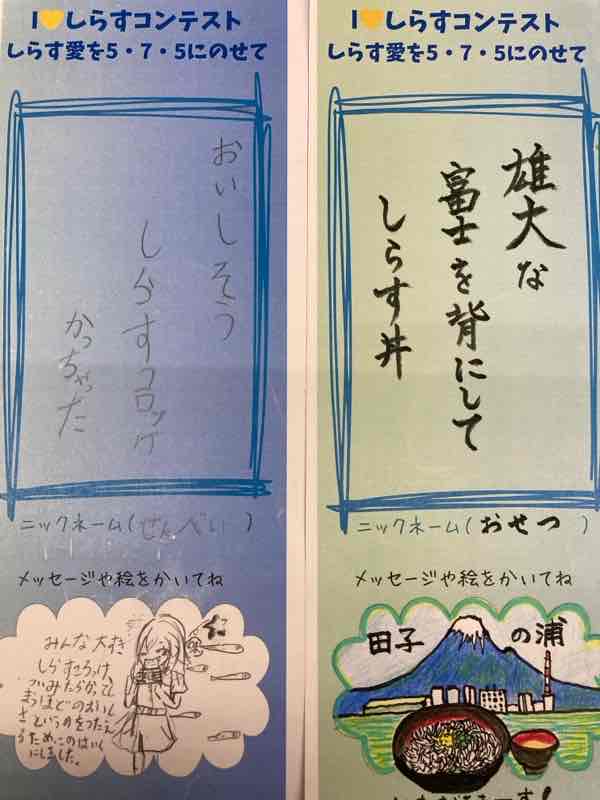 I💛しらすコンテスト
しらす愛を5・7・5にのせて
おいしそう
しらすコロッケ
かっちゃった
ニックネーム(せんべい)
メッセージや絵をかいてね
みんな大すき
しらすころっけ、
にしました。
I💛しらすコンテスト
しらす愛を5・7・5にのせて
雄大な
富士を背にして
しらす丼
ニックネーム(おせつ)
メッセージや絵をかいてね
田子の浦